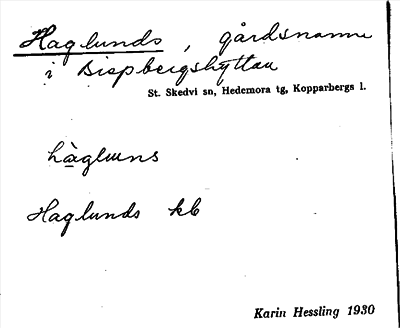 Haglunds, gårdsnamn
i Bispbergshyttan
St. Skedvi sn, Hedemora tg, Kopparbergs l.
hàgluns
Haglunds kb
Karin Hessling 1930